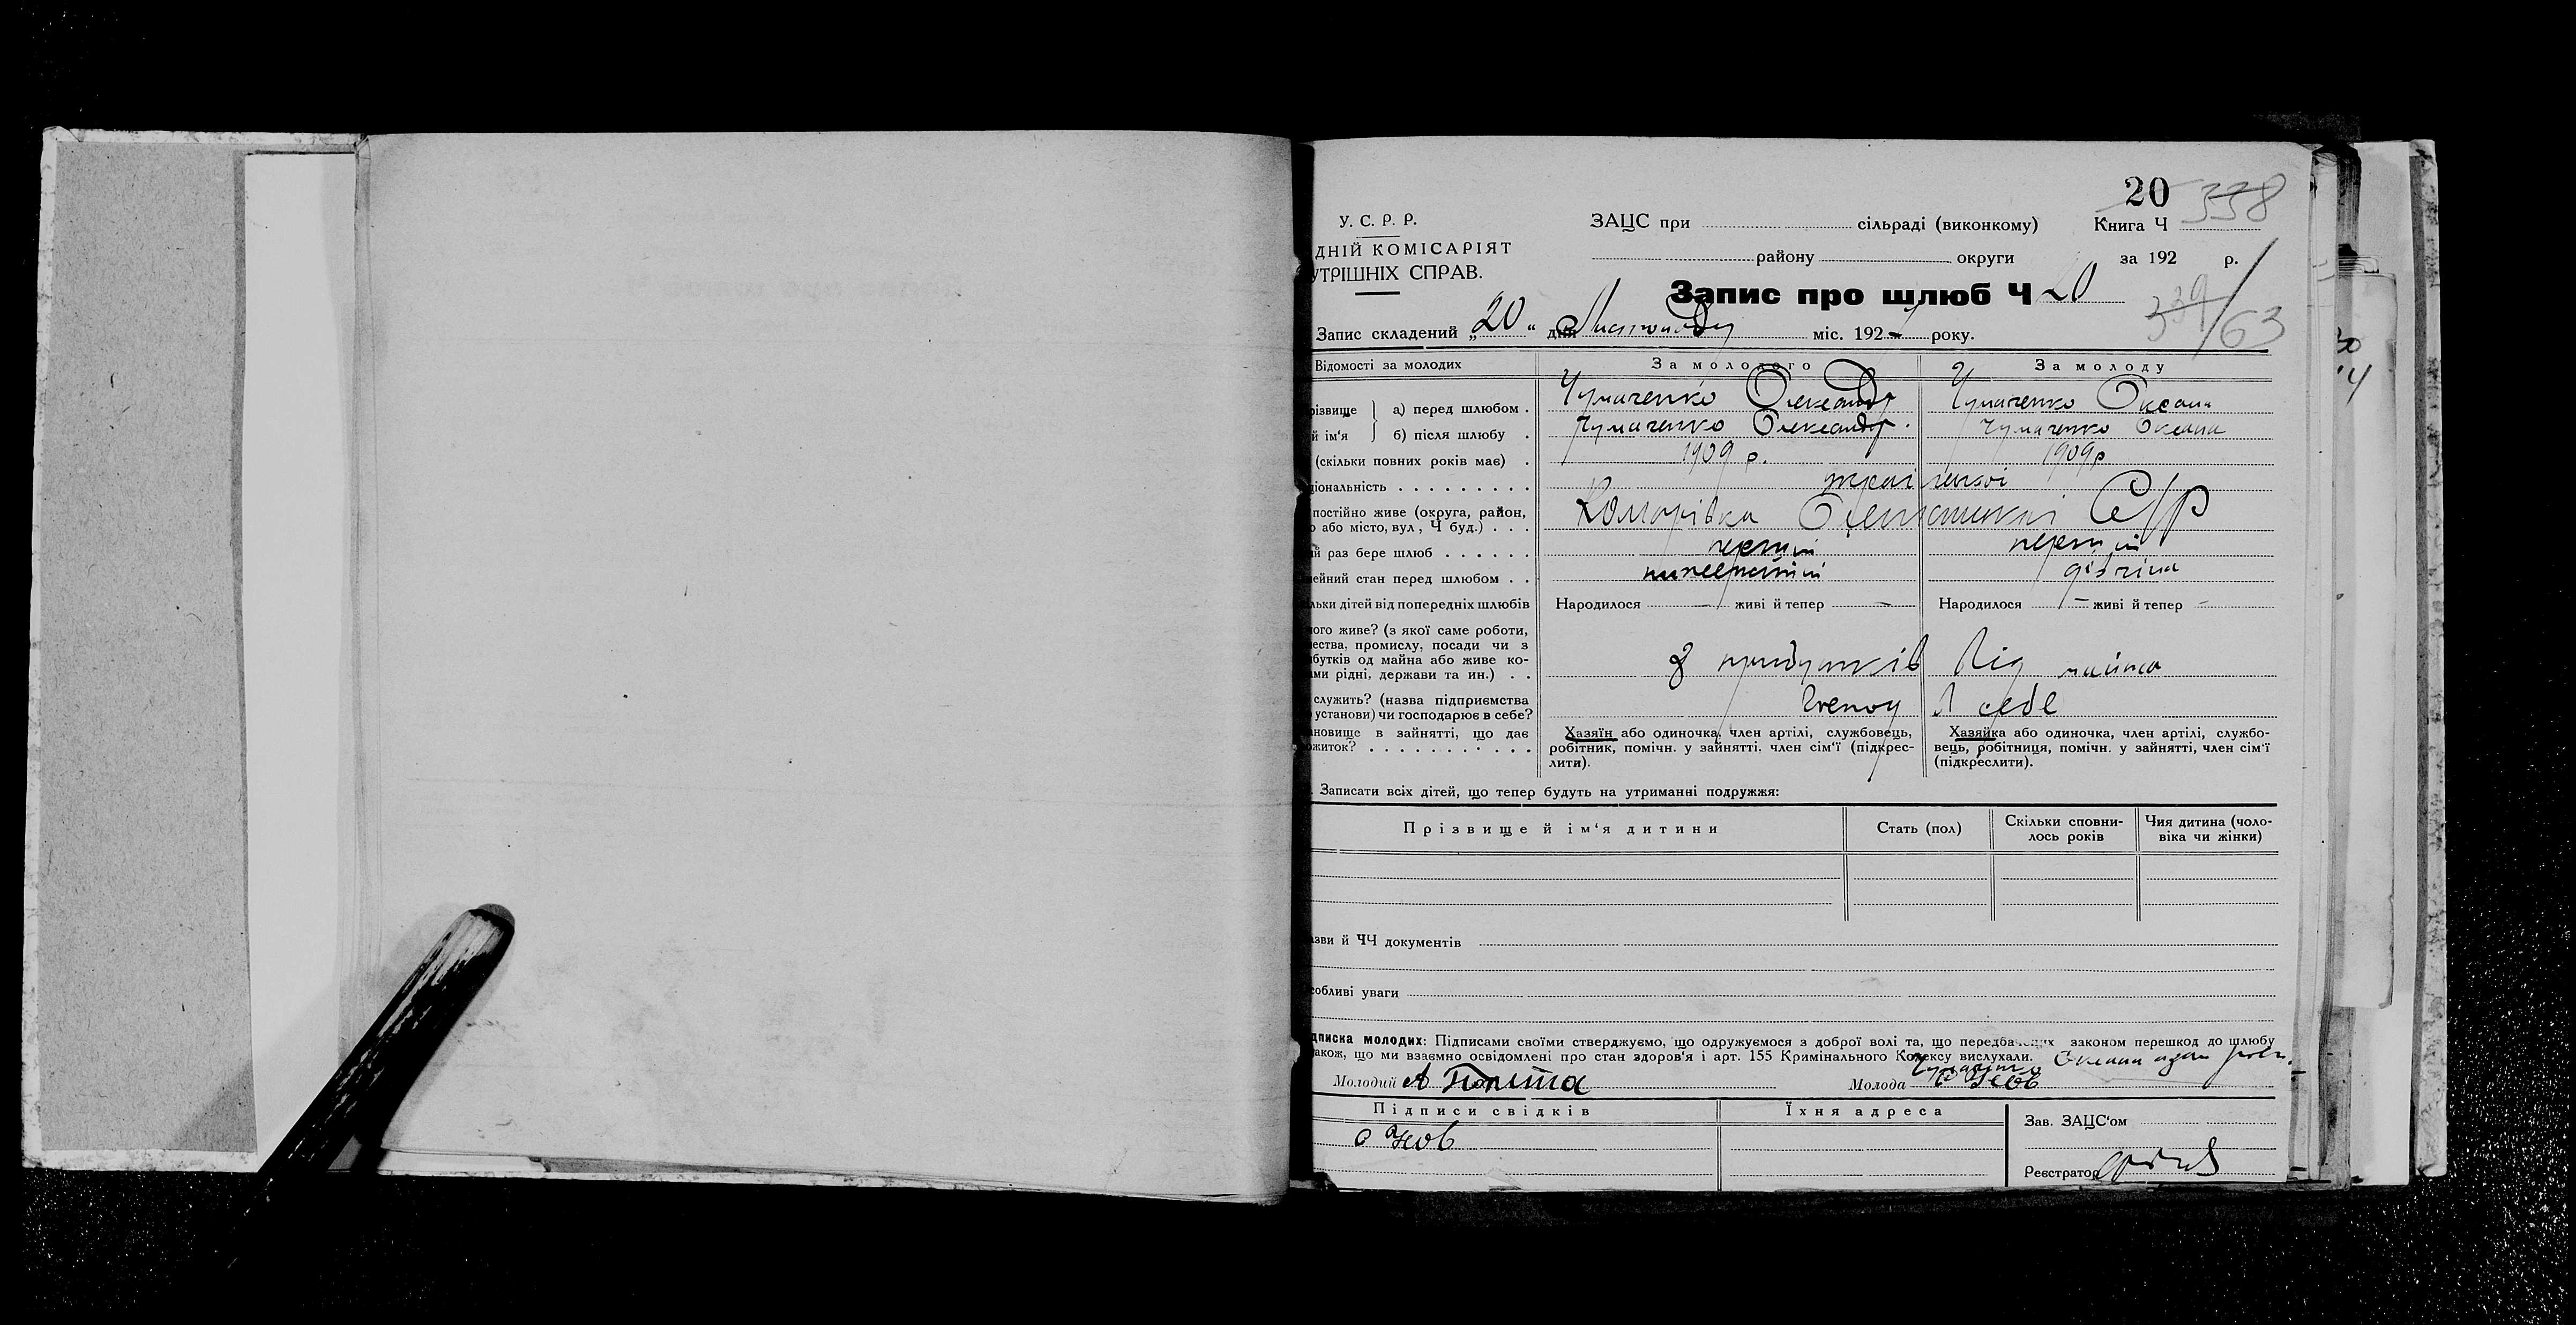 20
338
У. С. Р. Р.
ЗАЦС при сільраді (виконкому) Книга Ч
ДНІЙ КОМІСАРІЯТ
району округи за 192 р.
УТРІШНІХ СПРАВ.
Запис про шлюб Ч 20
339/63
Запис складений „20“ дня Листопаду міс. 192 року.
Відомості за молодих За молодого За молоду
різвище а) перед шлюбом . Чумаченко Олександр Чумаченко Оксана
й ім'я б) після шлюбу . Чумаченко Олександр. Чумаченко Оксана
(скільки повних років має) . 1909 р. 1909 р
ціональність . . . . . . . . .
постійно живе (округа, район, Комарівка С/Р
о або місто, вул, Ч буд.) . . .
ий раз бере шлюб . . . . . . перший перший
ейний стан перед шлюбом . . дівчина
льки дітей від попередніх шлюбів Народилося — живі й тепер — Народилося — живі й тепер —
ого живе? (з якої саме роботи,
ества, промислу, посади чи з
бутків од майна або живе ко- З прибутків від майна
ами рідні, держави та ин.) . .
служить? (назва підприємства
установи) чи господарює в себе? в себе
новище в зайнятті, що дає Хазяїн або одиночка, член артілі, службовець, Хазяйка або одиночка, член артілі, службо-
ожиток? . . . . . . . . . . . робітник, помічн. у зайнятті, член сім'ї (підкрес- вець, робітниця, помічн. у зайнятті, член сім'ї
лити). (підкреслити).
Записати всіх дітей, що тепер будуть на утриманні подружжя:
Прізвище й ім'я дитини Стать (пол) Скільки сповни- Чия дитина (чоло-
лось років віка чи жінки)
зви й ЧЧ документів
собливі уваги
дписка молодих: Підписами своїми стверджуємо, що одружуємося з доброї волі та, що передбачених законом перешкод до шлюбу
акож, що ми взаємно освідомлені про стан здоров'я і арт. 155 Кримінального Кодексу вислухали.
Молодий Молода
Підписи свідків Їхня адреса
Зав. ЗАЦС'ом
Реєстратор